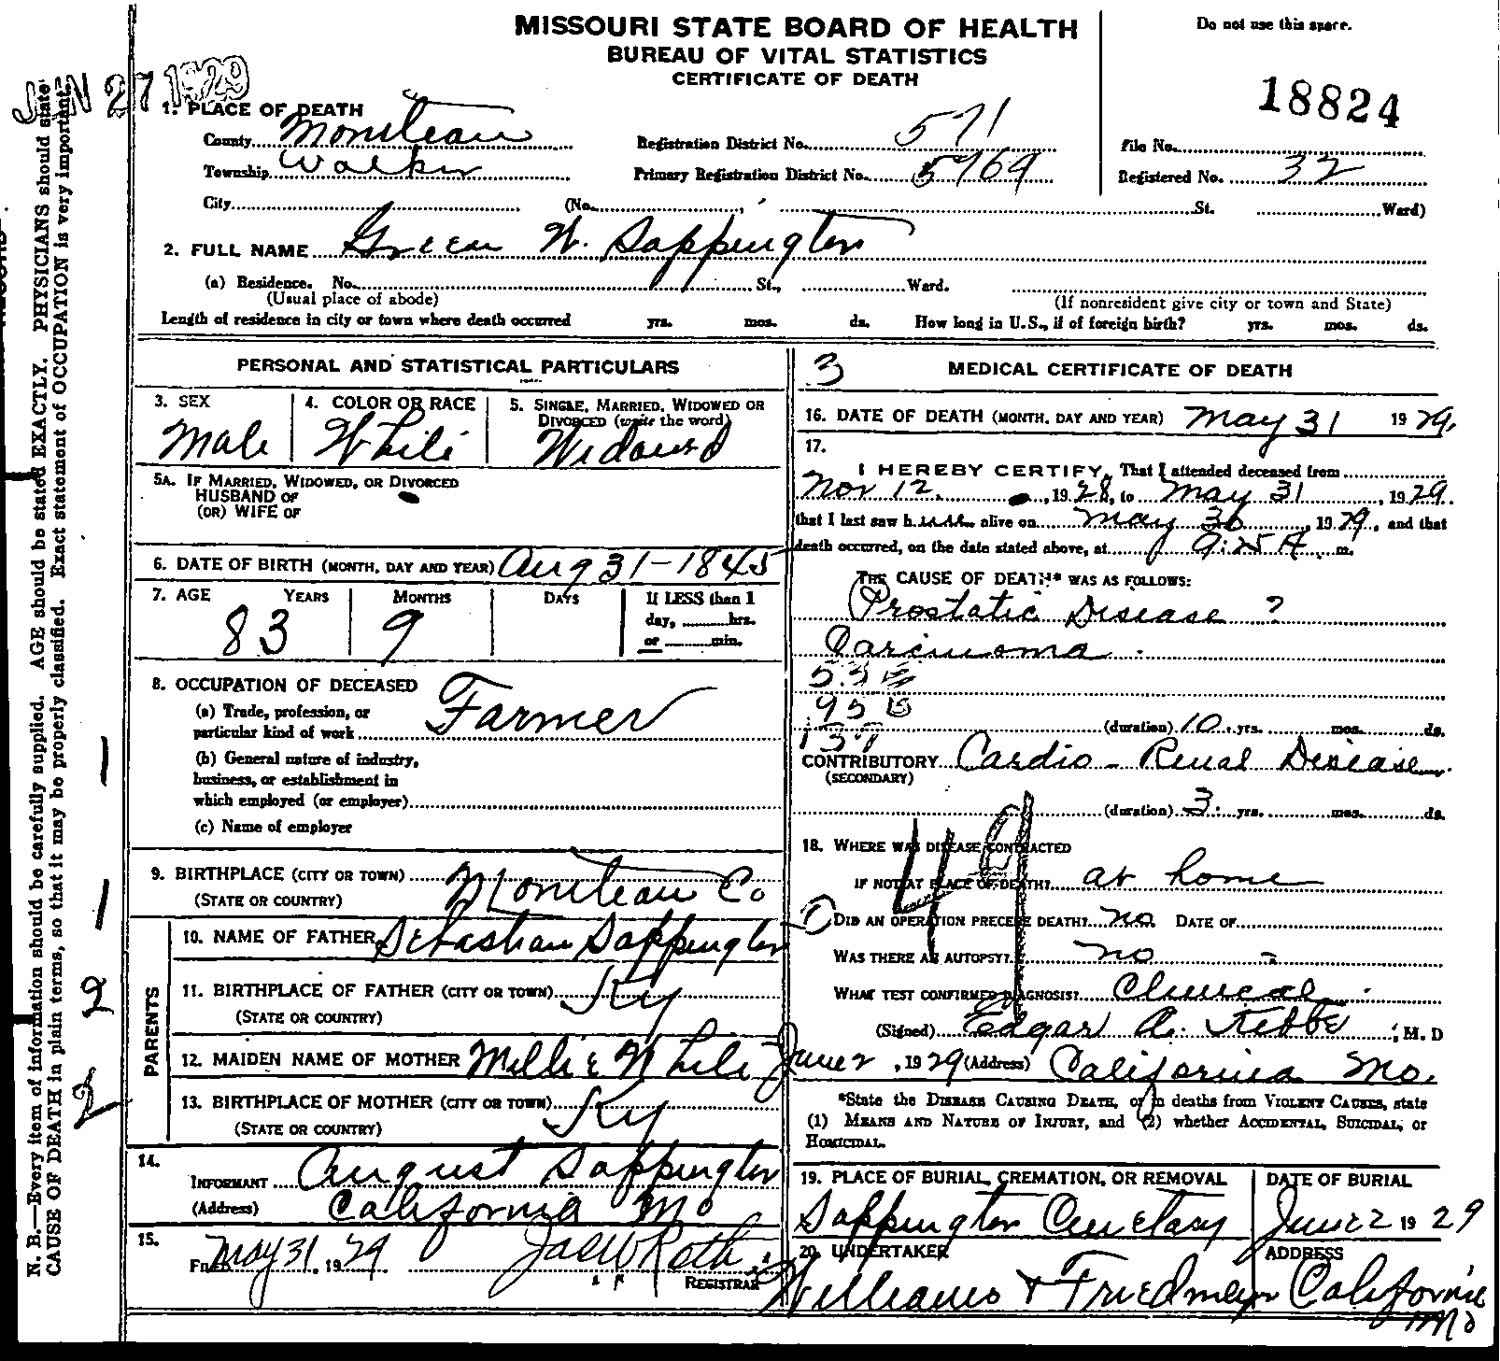 MISSOURI STATE BOARD OF HEALTH
BUREAU OF VITAL STATISTICS
CERTIFICATE OF DEATH
Do not use this space.
27 1929
18824
1. PLACE OF DEATH
County Moniteau Registration District No. 571 File No.
Township Walker Primary Registration District No. 5769 Registered No. 32
City (No. St. Ward)
2. FULL NAME Green W. Sappington
(a) Residence. No. St., Ward.
(Usual place of abode) (If nonresident give city or town and State)
Length of residence in city or town where death occurred yrs. mos. ds. How long in U.S., if of foreign birth? yrs. mos. ds.
PERSONAL AND STATISTICAL PARTICULARS
3. SEX 4. COLOR OR RACE 5. SINGLE, MARRIED, WIDOWED OR DIVORCED (write the word)
Male White Widowed
5A. IF MARRIED, WIDOWED, OR DIVORCED
HUSBAND OF
(OR) WIFE OF
6. DATE OF BIRTH (MONTH, DAY AND YEAR) Aug 31-1845
7. AGE YEARS MONTHS DAYS If LESS than 1
day, hrs.
or min.
83 9
8. OCCUPATION OF DECEASED
(a) Trade, profession, or
particular kind of work Farmer
(b) General nature of industry,
business, or establishment in
which employed (or employer)
(c) Name of employer
9. BIRTHPLACE (CITY OR TOWN) Moniteau Co
(STATE OR COUNTRY)
PARENTS
10. NAME OF FATHER Sebastian Sappington
11. BIRTHPLACE OF FATHER (CITY OR TOWN) Ky
(STATE OR COUNTRY)
12. MAIDEN NAME OF MOTHER Millie White
13. BIRTHPLACE OF MOTHER (CITY OR TOWN) Ky
(STATE OR COUNTRY)
14.
INFORMANT August Sappington
(Address) California Mo
15.
FILED May 31, 1929 Jas W Roth
REGISTRAR
3 MEDICAL CERTIFICATE OF DEATH
16. DATE OF DEATH (MONTH, DAY AND YEAR) May 31 1929.
17.
I HEREBY CERTIFY, That I attended deceased from
Nov 12. , 1928, to May 31 , 1929
that I last saw him alive on May 30 , 1929, and that
death occurred, on the date stated above, at 9:25 A. m.
THE CAUSE OF DEATH* WAS AS FOLLOWS:
Prostatic Disease ?
Carcinoma
95 B
(duration) 10 yrs. mos. ds.
CONTRIBUTORY Cardio-Renal Disease
(SECONDARY)
(duration) 3. yrs. mos. ds.
49
18. WHERE WAS DISEASE CONTRACTED
IF NOT AT PLACE OF DEATH? at home
DID AN OPERATION PRECEDE DEATH? no DATE OF
WAS THERE AN AUTOPSY? no
WHAT TEST CONFIRMED DIAGNOSIS? Clinical
(Signed) Edgar A. Kibbe, M. D
June 2, 1929 (Address) California Mo.
*State the DISEASE CAUSING DEATH, or in deaths from VIOLENT CAUSES, state
(1) MEANS AND NATURE OF INJURY, and (2) whether ACCIDENTAL, SUICIDAL, or
HOMICIDAL.
19. PLACE OF BURIAL, CREMATION, OR REMOVAL DATE OF BURIAL
Sappington Cemetary June 2 1929
20. UNDERTAKER ADDRESS
Williams & Friedmeyer California
Mo
N. B.—Every item of information should be carefully supplied. AGE should be stated EXACTLY. PHYSICIANS should state
CAUSE OF DEATH in plain terms, so that it may be properly classified. Exact statement of OCCUPATION is very important.
1
1
2
2